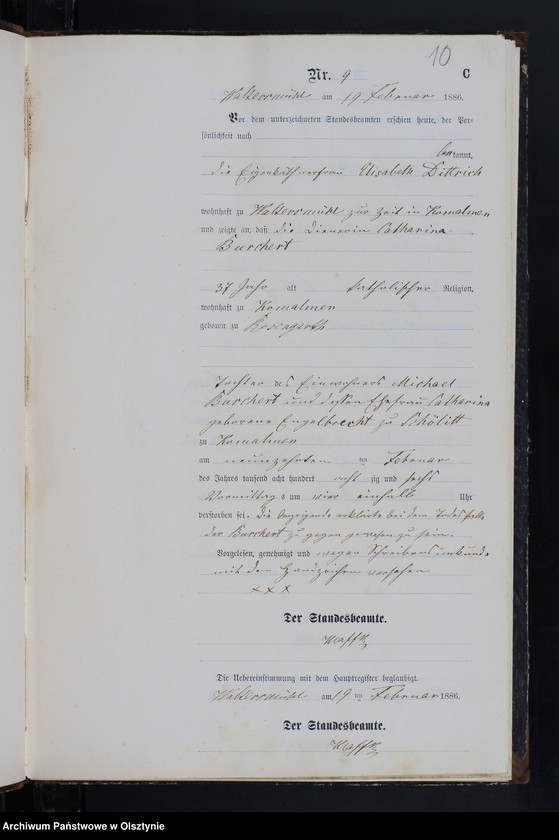 10
Nr. 9
C
Waltersmühl am 19 Februar 1886.
Vor dem unterzeichneten Standesbeamten erschien heute, der Per-
sönlichkeit nach
bekannt,
die Eigenkäthnerfrau Elisabeth Dittrich
wohnhaft zu Waltersmühl zur Zeit in Komalmen
und zeigte an, daß die Dienerin Catharina
Burchert
37 Jahr alt katholischer Religion,
wohnhaft zu Komalmen
geboren zu Rosengarth
Tochter des Einwohners Michael
Burchert und dessen Ehefrau Catharina
geborene Engelbrecht zu Schölitt
zu Komalmen
am neunzehnten ten Februar
des Jahres tausend acht hundert acht zig und sechs
Vormittags um vier einhalb Uhr
verstorben sei. Die Anzeigende erklärte bei dem Todesfalle
der Burchert zu gegen gewesen zu sein.
Vorgelesen, genehmigt und wegen Schreibensunkunde
mit dem Handzeichen versehen
x x x
Der Standesbeamte.
Die Uebereinstimmung mit dem Hauptregister beglaubigt.
Waltersmühl am 19 ten Februar 1886.
Der Standesbeamte.
Archiwum Państwowe w Olsztynie